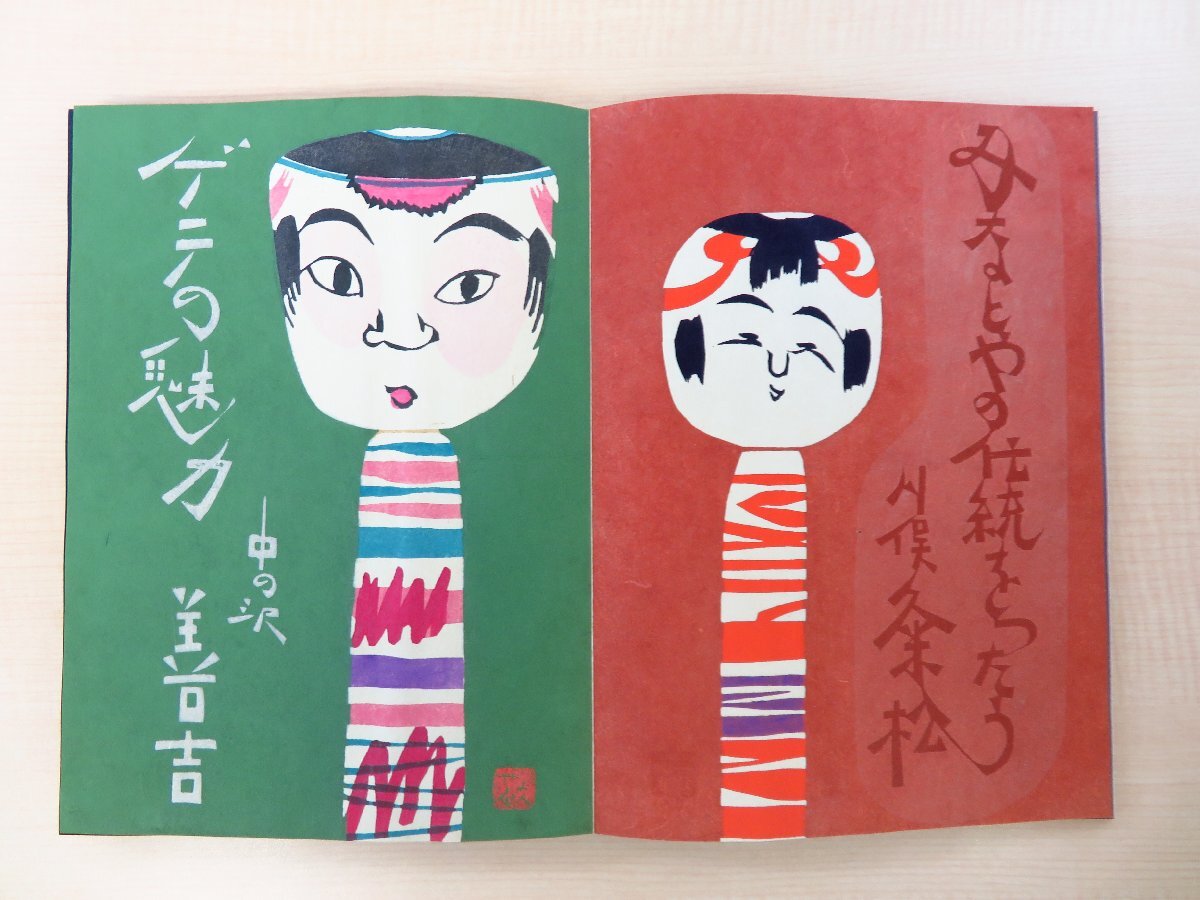 みなとやの伝統をつたう
川俣粂松
ゲテの魅力
中の沢
善吉